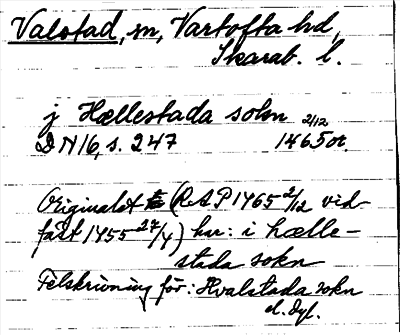 Valstad, sn, Vartofta hd,
Skarab. l.
j Hællestada sokn 2/12
DN 16, s. 247 1465 or.
Originalet (RAP 1465 2/12 vid-
fäst 1455 27/4) har: i hælle-
stada sokn
Felskrivning för: Hvalstada sokn
el. dyl.